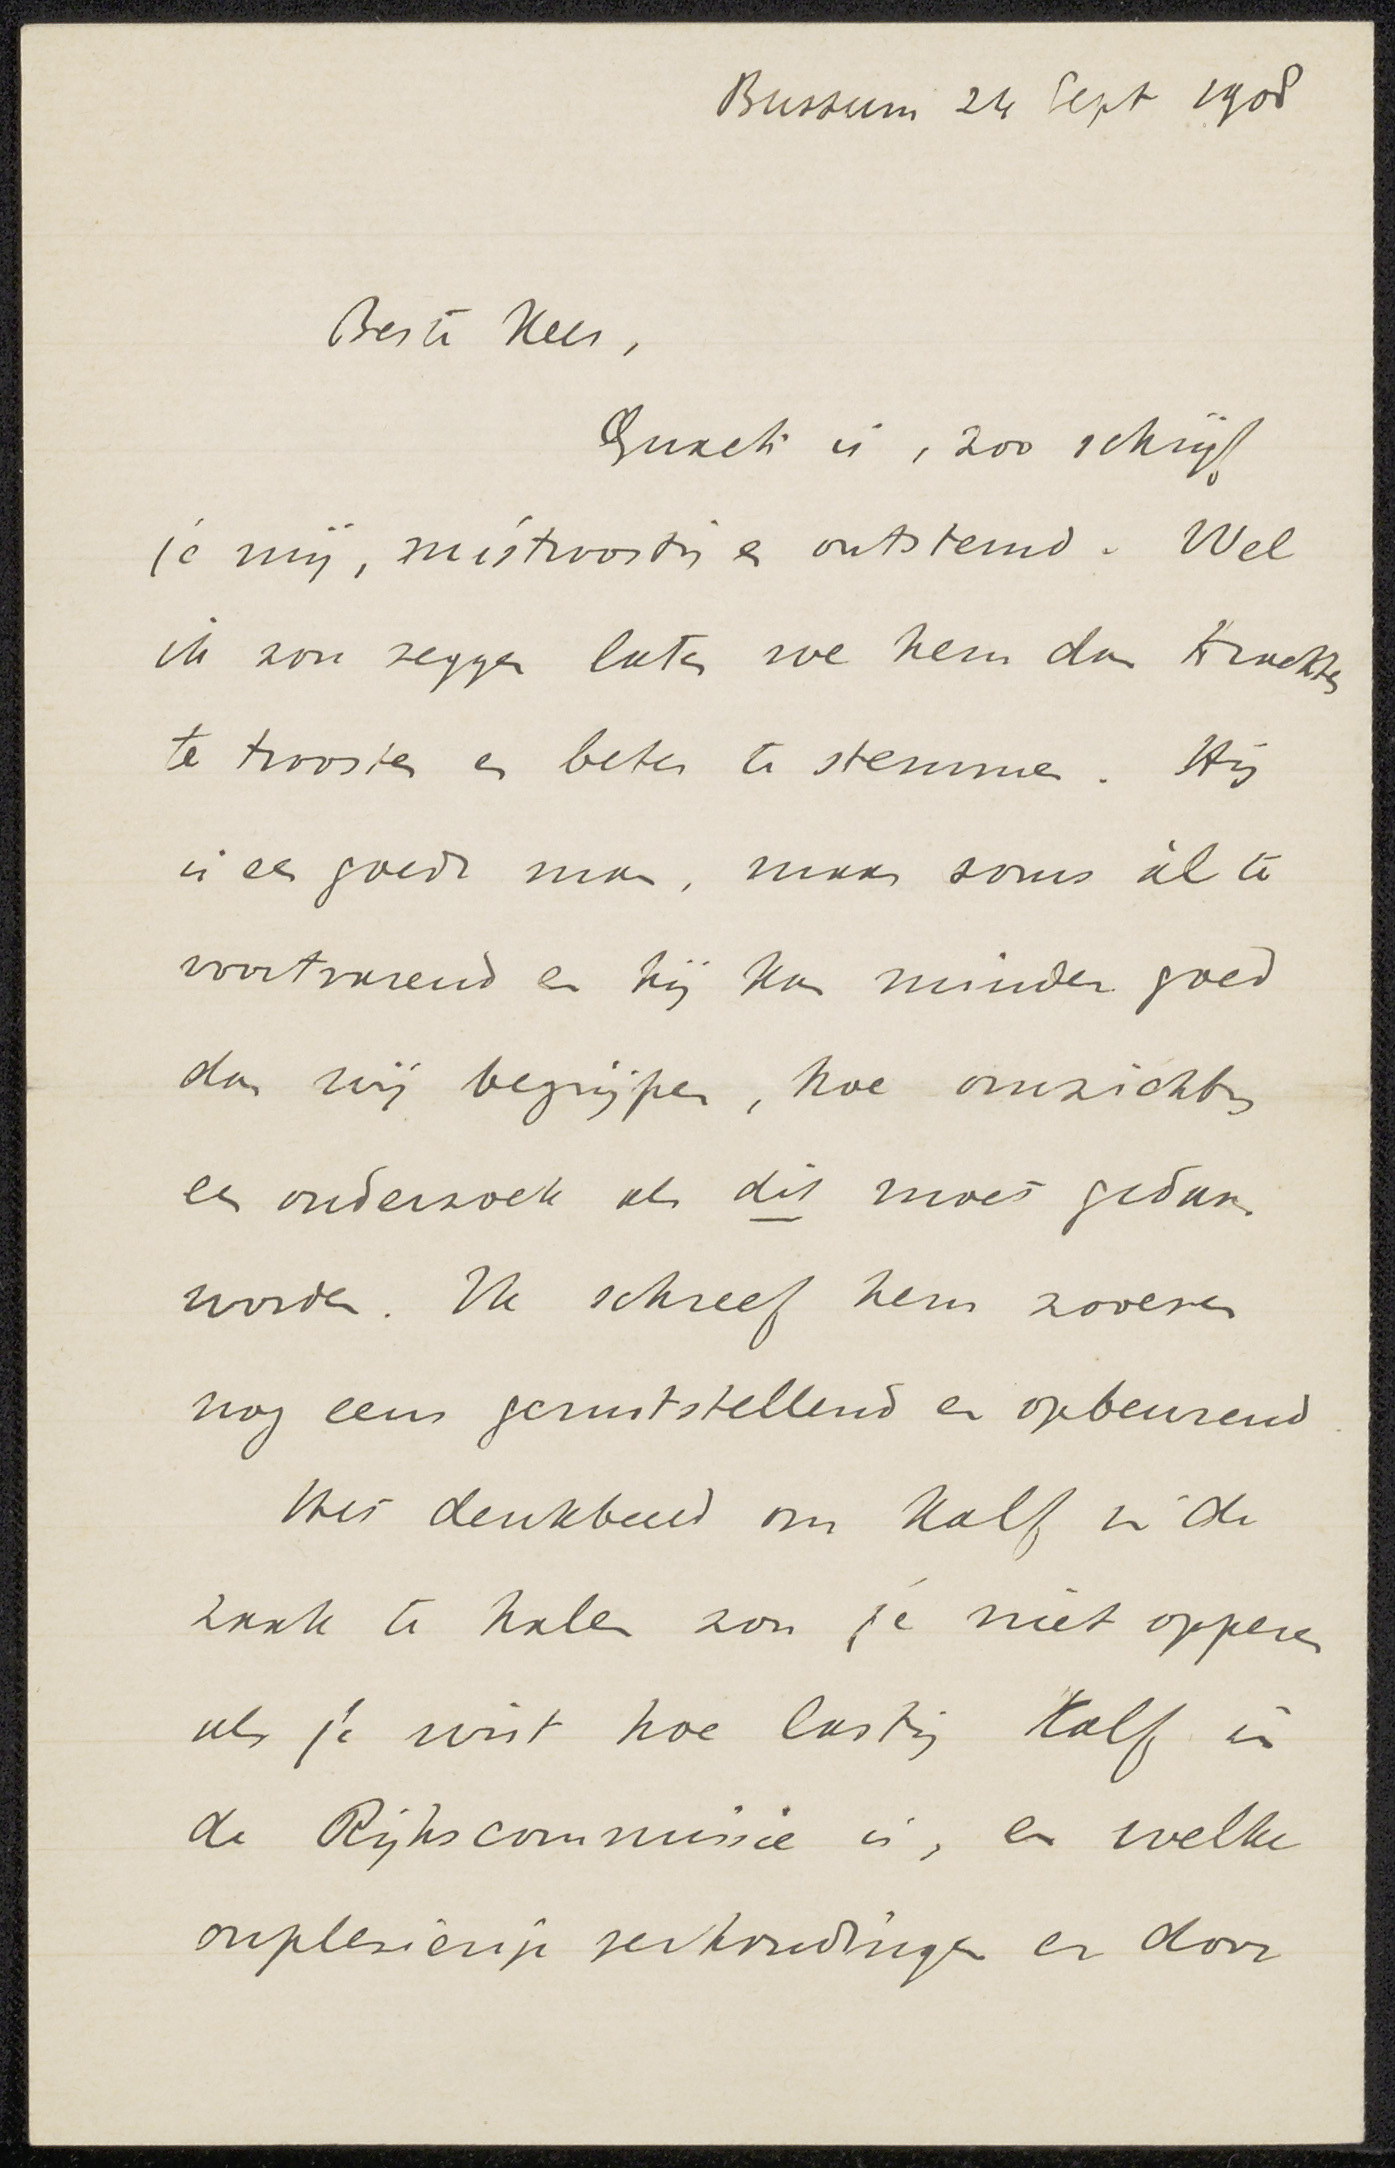 Bussum 24 Sept 1908
Beste Kees,
is, zoo schrijf
je mij, mistroostig en ontstemd. Wel
ik zou zeggen laten we hem dan trachten
te troosten en beter te stemmen. Hij
is een goede man, maar soms àl te
voortvarend en hij kan minder goed
dan wij begrijpen, hoe omzichtig
een onderzoek als dit moet gedaan
worden. Ik schreef hem zooeven
nog eens geruststellend en opbeurend
Het denkbeeld om Kalf in de
zaak te halen zou je niet opperen
als je wist hoe lastig Kalf in
de Rijkscommissie is, en welke
onplezierige verhoudingen er door